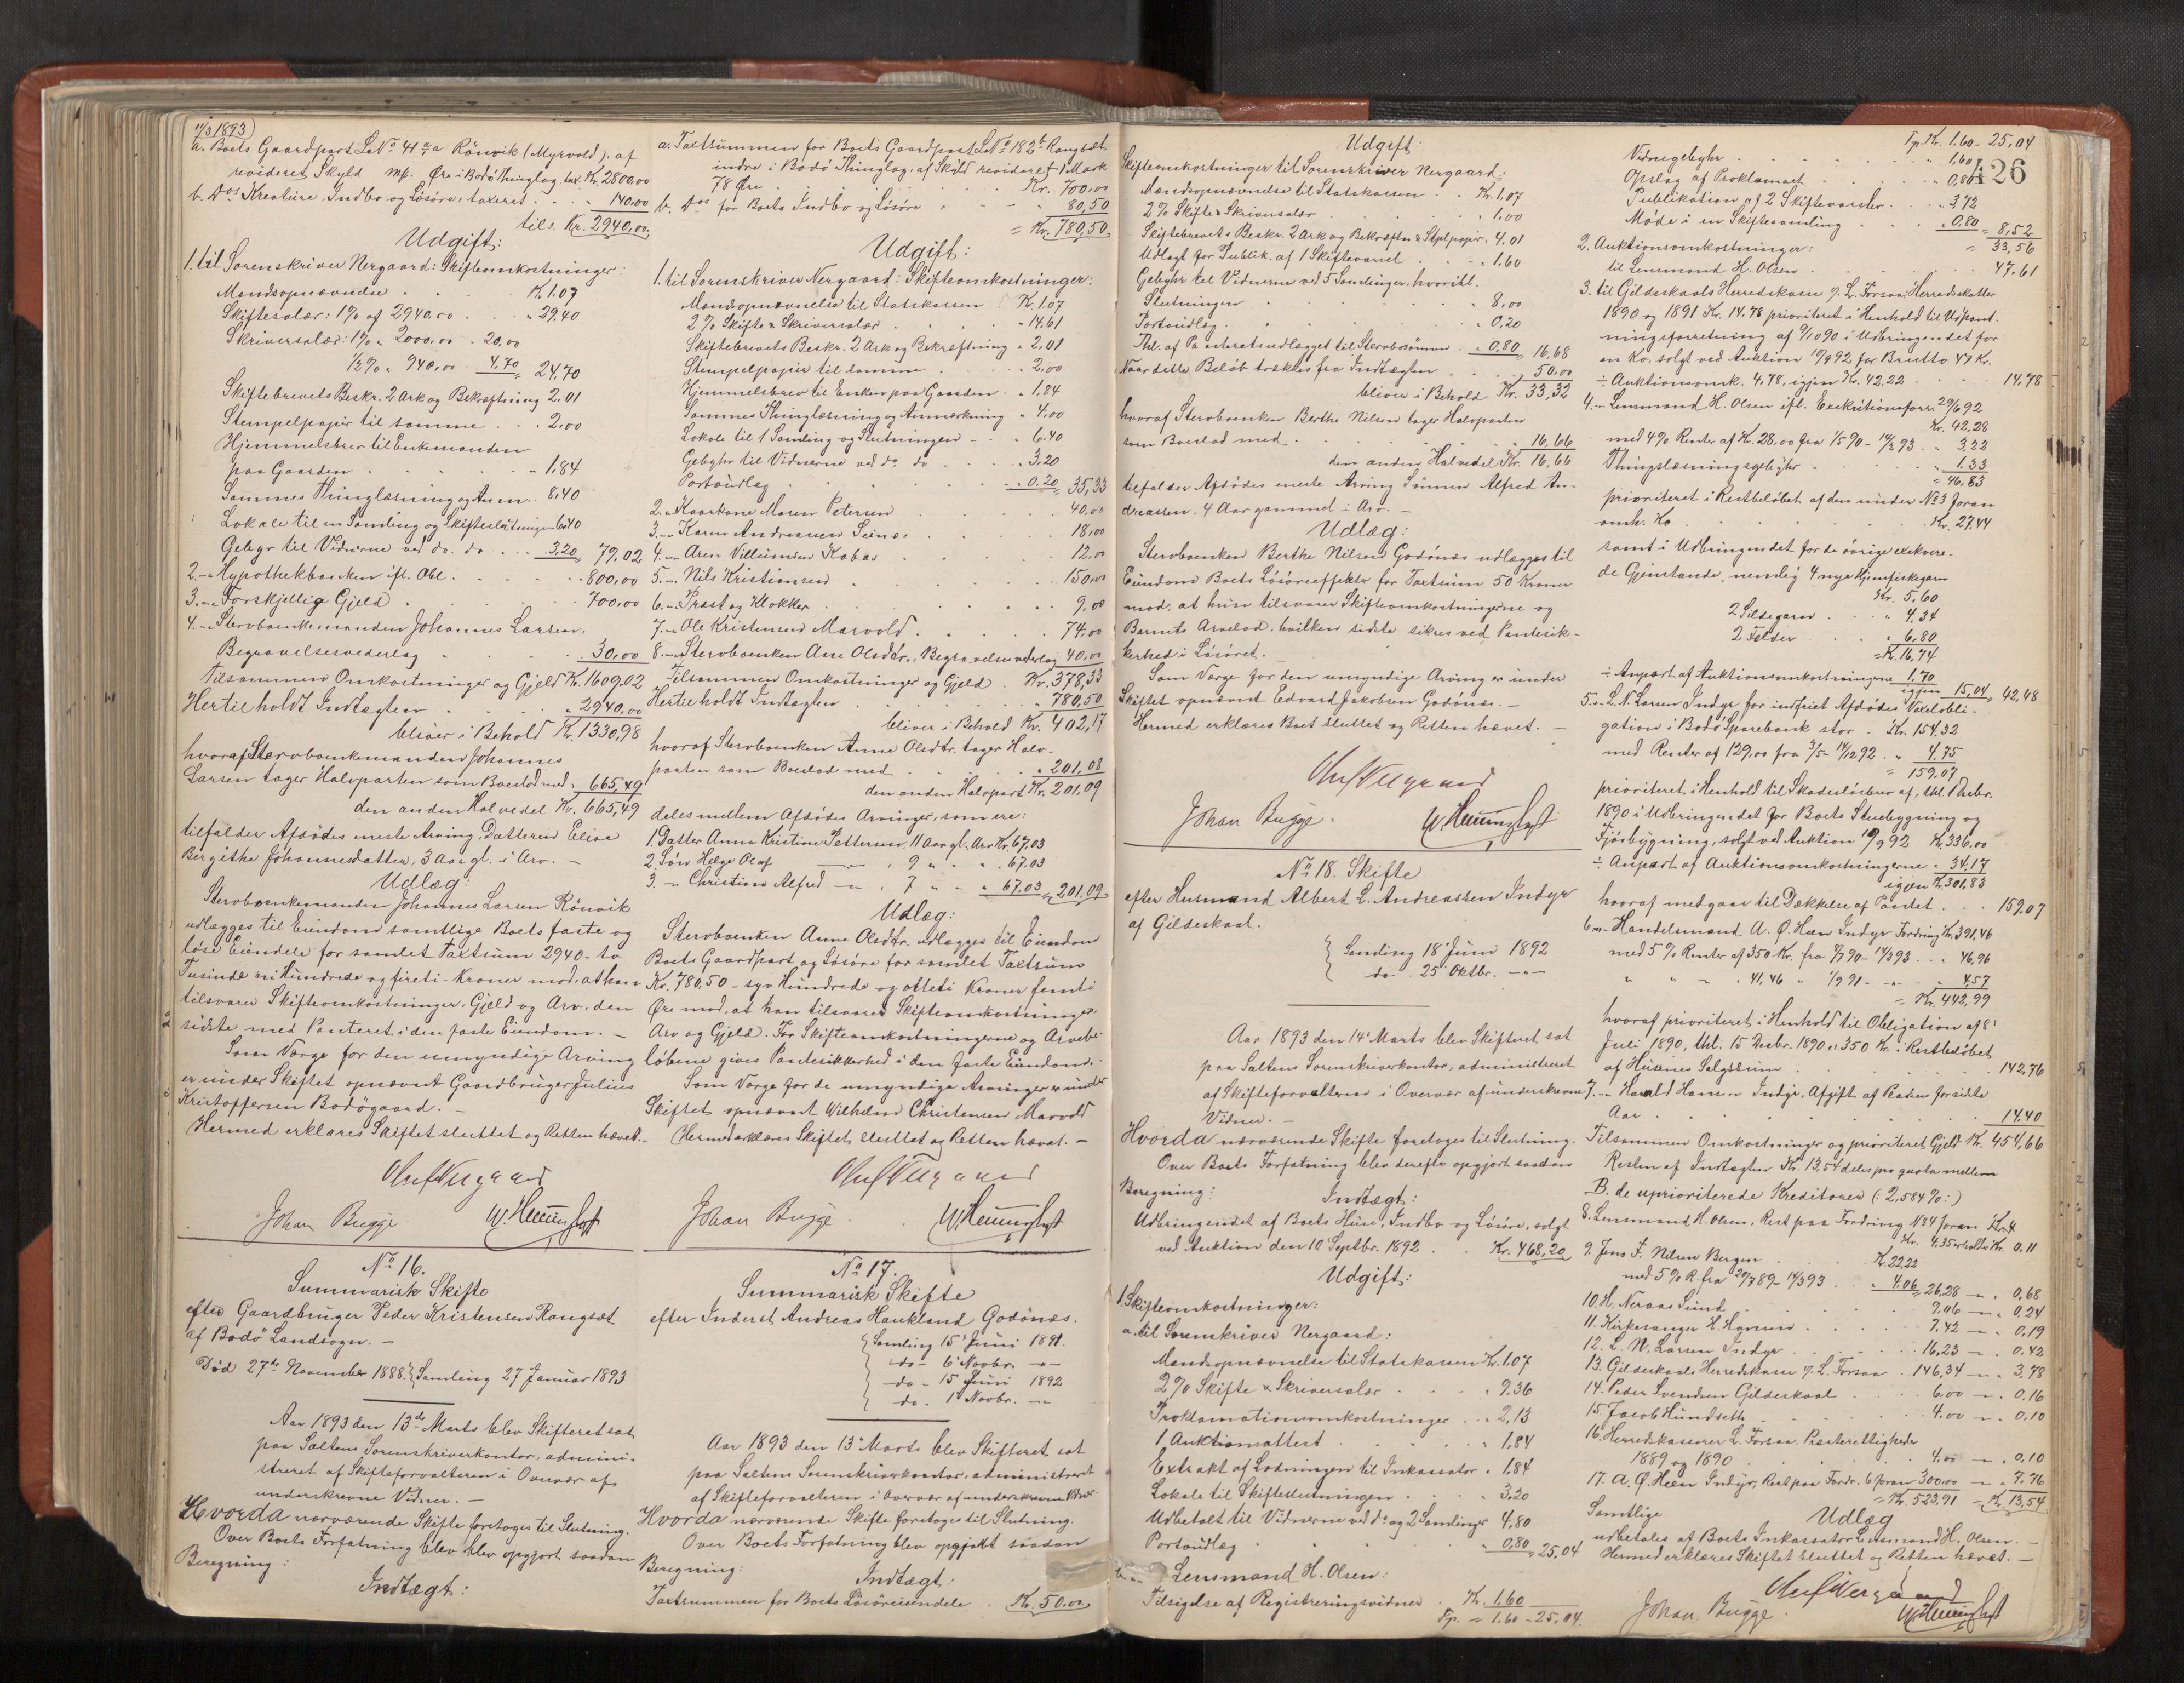 11/3 1893)
a. Boets Gaardpart L.Nº 41 a Rönvik (Myrvold), af
revideret Skyld Mk. Øre i Bodö Thinglag, tax. Kr. 2800,00
b. Dos Kreature, Indbo og Lösöre, taxeret . . 140,00
tils. Kr. 2940,00
Udgift:
1. til Sorenskriver Nergaard: Skifteomkostninger:
Mandsopnævnelse . . Kr. 1.07
Skiftesalær: 1% af 2940,00 . . " 29.40
Skriversalær: 1% " 2000,00 . 20,00
1/2% " 940,00 . 4,70 24,70
Skiftebrevets Beskr. 2 Ark og Bekræftning 2,01
Stempelpapir til samme . . 2,00
Hjemmelsbrev til Enkemanden
paa Gaarden . . . " 1,84
Sammes Thinglæsning og Anm. . 8,40
Lokale til en Samling og Skifteslutningen 6,40
Gebyr til Vidnerne ved do. do. . . 3,20 79,02
2. " Hypothekbanken ifl. Obl. . . . 800,00
3. " Forskjellige Gjeld . . . 700,00
4. " Stervboenkemanden Johannes Larsen,
Begravelsesvederlag . . . 30,00
Tilsammen Omkostninger og Gjeld Kr. 1609,02
Hertil holdt Indtægten . . . " 2940,00
bliver i Behold Kr. 1330,98
hvoraf Stervboenkemanden Johannes
Larsen tager Halvparten som Boeslod med " 665,49
den anden Halvedel Kr. 665,49
tilfalder Afdødes eneste Arving, Datteren Elise
Bergithe Johannesdatter, 3 Aar gl. i Arv. –
Udlæg:
Stervboenkemanden Johannes Larsen Rönvik
udlægges til Eiendom samtlige Boets faste og
løse Eiendele for samlet Taxtsum 2940 - to
Tusinde ni Hundrede og fireti - Kroner mod, at han
tilsvarer Skifteomkostninger, Gjeld og Arv, den
sidste med Panteret i den faste Eiendom. –
Som Værge for den umyndige Arving
er under Skiftet opnævnt Gaardbruger Julius
Kristoffersen Bodögaard. –
Hermed erklæres Skiftet sluttet og Retten hævet. –
Oluf Nergaard
Johan Bugge. W. Henningsen
Nº 16.
Summarisk Skifte
efter Gaardbruger Peder Kristensen Rangsæt
af Bodö Landsogn. –
Död 27de November 1888. } Samling 27 Januar 1893
Aar 1893 den 13de Marts blev Skifteret sat
paa Saltens Sorenskriverkontor, admini-
streret af Skifteforvalteren i Overvær af
underskrevne Vidner. –
Hvorda nærværende Skifte foretoges til Slutning.
Over Boets Forfatning blev blev opgjort saadan
Beregning:
Indtægt:
a. Taxtsummen for Boets Gaardpart L.Nº 182 b Rangsæt
indre i Bodö Thinglag, af Skyld revideret 1 Mark
78 Øre . . . Kr. 700,00
b. Dos for Boets Indbo og Lösöre . . 80,50
= Kr. 780,50
Udgift:
1. til Sorenskriver Nergaard: Skifteomkostninger:
Mandsopnævnelse til Statskassen Kr. 1.07
2% Skifte & Skriversalær . . " 14.61
Skiftebrevets Beskr. 2 Ark og Bekræftning " 2,01
Stempelpapir til samme . . . 2,00
Hjemmelsbrev til Enken paa Gaarden . " 1,84
Sammes Thinglæsning og Anmærkning " 4,00
Lokale til 1 Samling og Slutningen . . " 6.40
Gebyhr til Vidnerne ved do. do. . . 3,20
Portoudlæg . . . " 0.20 35,33
2. " Kaarkone Maren Petersen . . 40,00
3. " Karen Andreassen Seines . . 18,00
4. " Aron Villumsen Kobas . . 12,00
5. " Nils Kristiansen . . . 150,00
6. " Præst og Klokker . . . 9,00
7. " Ole Kristensen Marvold . . 74,00
8. " Stervboenken Ane Olsdtr., Begravelsesvederlag 40,00
Tilsammen Omkostninger og Gjeld . Kr. 378,33
Hertil holdt Indtægten . . . " 780,50
bliver i Behold Kr. 402,17
hvoraf Stervboenken Anne Olsdtr. tager Halv-
parten som Boeslod med . . " 201,08
den anden Halvpart Kr. 201,09
deles mellem Afdödes Arvinger, som ere:
1. Datter Anna Kristine Pettersen, 11 Aar gl. Arv Kr. 67,03
2. Sön Helge Olaf — " 9 " " 67.03
3. " Christian Alfred — " 7 " " 67,03 = 201,09
Udlæg:
Stervboenken Anne Olsdtr. udlægges til Eiendom
Boets Gaardpart og Lösöre for samlet Taxtsum
Kr. 780,50 - syv Hundrede og otteti Kroner femti
Øre mod, at hun tilsvarer Skifteomkostninger,
Arv og Gjeld. For Skifteomkostningerne og Arvebe-
løbene gives Pantesikkerhed i den faste Eiendom. –
Som Værge for de umyndige Arvinger er under
Skiftet opnævnt Wilhelm Christensen Marvold
Hermed erklæres Skiftet sluttet og Retten hævet. –
Oluf Nergaard
Johan Bugge. W. Henningsen
Nº 17.
Summarisk Skifte
efter Inderst Andreas Haukland Godönes.
{ Samling 15 Juni 1891.
{ do - 6 Novbr. — " —
{ do - 15 Juni 1892
{ do - 1 Novbr. — " —
Aar 1893 den 13 Marts blev Skifteret sat
paa Saltens Sorenskriverkontor, administreret
af Skifteforvalteren i Overvær af underskrevne Vidner.
Hvorda nærværende Skifte foretoges til Slutning.
Over Boets Forfatning blev opgjort saadan
Beregning:
Indtægt:
Taxtsummen for Boets Lösöreeiendele . Kr. 50.00
Udgift:
Skifteomkostninger til Sorenskriver Nergaard:
Mandsopnævnelse til Statskassen . Kr. 1.07
2% Skifte & Skriversalær . . . " 1,00
Skiftebrevets Beskr. 2 Ark og Bekræftn. & Stplpapir, 4.01
Udlagt for Publik. af 1 Skiftevarsel . . " 1.60
Gebyhr til Vidnerne ved 5 Samlinger, hvoriblt.
Slutningen . . . " 8,00
Portoudlæg . . . " 0,20
Thl. af Panteretsudlægget til Stervbosönnen . " 0,80 16,68
Naar dette Beløb trækkes fra Indtægten . . 50,00
bliver i Behold Kr. 33,32
hvoraf Stervboenken Berthe Nilsen tager Halvparten
som Boeslod med . . . " 16,66
den anden Halvedel Kr. 16,66
tilfalder Afdödes eneste Arving Sönnen Alfred An-
dreassen, 4 Aar gammel i Arv. –
Udlæg:
Stervboenken Berthe Nilsen Godönes udlægges til
Eiendom Boets Lösöreeffekter for Taxtsum 50 Kroner
mod, at hun tilsvarer Skifteomkostningerne og
Barnets Arvelod, hvilken sidste sikres ved Pantesik-
kerhed i Lösöret. –
Som Værge for den umyndige Arving er under
Skiftet opnævnt Edvard Jakobsen Godönes. –
Hermed erklæres Boet sluttet og Retten hævet. –
Oluf Nergaard
Johan Bugge. W. Henningsen
Nº 18. Skifte
efter Husmand Albert L. Andreassen Indyr
af Gildeskaal.
{ Samling 18 Juni 1892
{ do - 25 Oktbr. — " —
Aar 1893 den 14 Marts blev Skifteret sat
paa Saltens Sorenskriverkontor, administreret
af Skifteforvalteren i Overvær af underskrevne
Vidner. –
Hvorda nærværende Skifte foretoges til Slutning.
Over Boets Forfatning blev derefter opgjort saadan
Beregning:
Indtægt:
Udbringendet af Boets Huse, Indbo og Lösöre, solgt
ved Auktion den 10 Septbr. 1892 . . Kr. 468,20
Udgift:
1. Skifteomkostninger:
a. til Sorenskriver Nergaard:
Mandsopnævnelse til Statskassen Kr. 1.07
2% Skifte & Skriversalær . . . " 9.36
Proklamationsomkostninger . . " 2,13
1 Auktionsattest . . . " 1,84
Extrakt af Lodningen til Inkassator . " 1,84
Lokale til Skifteslutningen . . " 3,20
Udbetalt til Vidnerne ved do og 2 Samlinger 4,80
Portoudlæg . . . " 0,80 = 25,04
Lensmand H. Olsen:
Tilsigelse af Registreringsvidner . Kr. 1.60
Fp. = 1.60 - 25,04.
Fp. Kr. 1.60 - 25,04
426
Vidnegebyhr . . . " 1,60
Opslag af Proklamaet . . " 0,80
Publikation af 2 Skiftevarsler . . " 3,72
Møde i en Skiftesamling . . " 0,80 = 8,52
= 33,56
2. Auktionsomkostninger:
til Lensmand H. Olsen . . . 47,61
3. til Gildeskaals Herredskasse v. L. Forsaa: Herredsskatter
1890 og 1891 Kr. 14.78 prioriteret i Henhold til Udpant-
ningsforretning af 9/10 90 i Udbringendet for
en Ko, solgt ved Auktion 10/9 92 for Brutto 47 Kr.
÷ Auktionsomk. 4.78, igjen Kr. 42.22 . . 14,78
4. " Lensmand H. Olsen ifl. Exekutionsforr. 29/6 92
Kr. 42,28
med 4% Renter af Kr. 28.00 fra 1/5 90 - 14/3 93 . " 3,22
Thinglæsningsgebyhr . . " 1.33
= 46,83
prioriteret i Restbeløbet af den under No 3 foran
omh. Ko . . . Kr. 27.44
samt i Udbringendet for de övrige exekvere-
de Gjenstande, nemlig 4 nye Hjemfiskegarn
Kr. 5,60
2 Sildegarn . . " 4,34
2 Felder . . " 6,80
= Kr. 16,74
÷ Anpart af Auktionsomkostningerne 1,70
igjen 15,04 = 42,48
5. " L. N. Larsen Indyr for indfriet Afdødes Vexelobli-
gation i Bodö Sparebank stor . Kr. 154,32
med Renter af 129,00 fra 3/5 - 14/12 92 . " 4.75
= 159,07
prioriteret i Henhold til Skadesløsbrev af, thl. 1 Decbr.
1890 i Udbringendet for Boets Stuebygning og
Fjösbygning, solgt ved Auktion 10/9 92 Kr. 336,00
÷ Anpart af Auktionsomkostningerne " 34,17
igjen Kr. 301,83
hvoraf medgaar til Dækkelse af Pantet . . 159,07
6. " Handelsmand A. Ø. Hæn Indyr Fordring Kr. 391,46
med 5% Renter af 350 Kr. fra 8/7 90 - 14/3 93 . . " 46,96
" " " 41,46 " 1/9 91 - " " 4,57
= Kr. 442,99
hvoraf prioriteret i Henhold til Obligation af 8
Juli 1890, thl. 15 Decbr. 1890 " 350 Kr. i Restbeløbet
af Husenes Salgssum . . . 142,76
7. " Harald Hansen Indyr, Afgift af Pladsen for sidste
Aar . . . 14.40
Tilsammen Omkostninger og prioriteret Gjeld Kr. 454,66
Resten af Indtægten Kr. 13,54 deles pro quota mellem
B. de uprioriterede Kreditorer (: 2,584%:)
8. Lensmand H. Olsen, Rest paa Fordring No 4 foran
Kr. 4.35 erholder Kr. 0.11
9. Jens F. Nilsen Bergen . . Kr. 22,22
med 5% R. fra 20/7 89 - 14/3 93 . . " 4.06 = 26,28 — " 0,68
10. H. Neraas Sund . . . 9.06 — " 0,24
11. Kirkesanger H. Hansen . . . 7.42 — " 0,19
12. L. N. Larsen Indyr . . . 16,23 — " 0.42
13. Gildeskaals Herredskasse v. L. Forsaa . 146,34 — " 3,78
14. Peder Svendsen Gildeskaal . . 6.00 — " 0.16
15. Jacob Hundseth . . . 4.00 — " 0,10
16. Herredskasserer L. Forsaa, Panterettigheder
1889 og 1890 . . . 4.00 — " 0,10
17. A. Ø. Hæn Indyr, Rest paa Fordr. 6 foran 300,00 — " 7.76
= Kr. 523,91 = Kr. 13,54
Udlæg
Samtlige
udbetales af Boets Inkassator Lensmand H. Olsen. –
Hermed erklæres Skiftet sluttet og Retten hævet. –
Oluf Nergaard
Johan Bugge. W. Henningsen